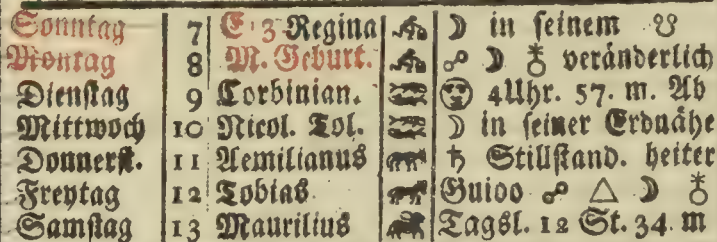 Sonntag 7 E 13 Regina ☽ in seinem ☋
Montag 8 M. Geburt. ☍ ☽ ⚷ veränderlich
Dienstag 9 Corbinian. 4Uhr. 57. m. Ab
Mittwoch 10 Nicol. Tol. ☽ in seiner Erdnähe
Donnerst. 11 Aemilianus ♄ Stillstand. heiter
Freytag 12 Tobias. Guido ☍ △ ☽ ⚷
Samstag 13 Maurilius Tagsl. 12 St. 34. m